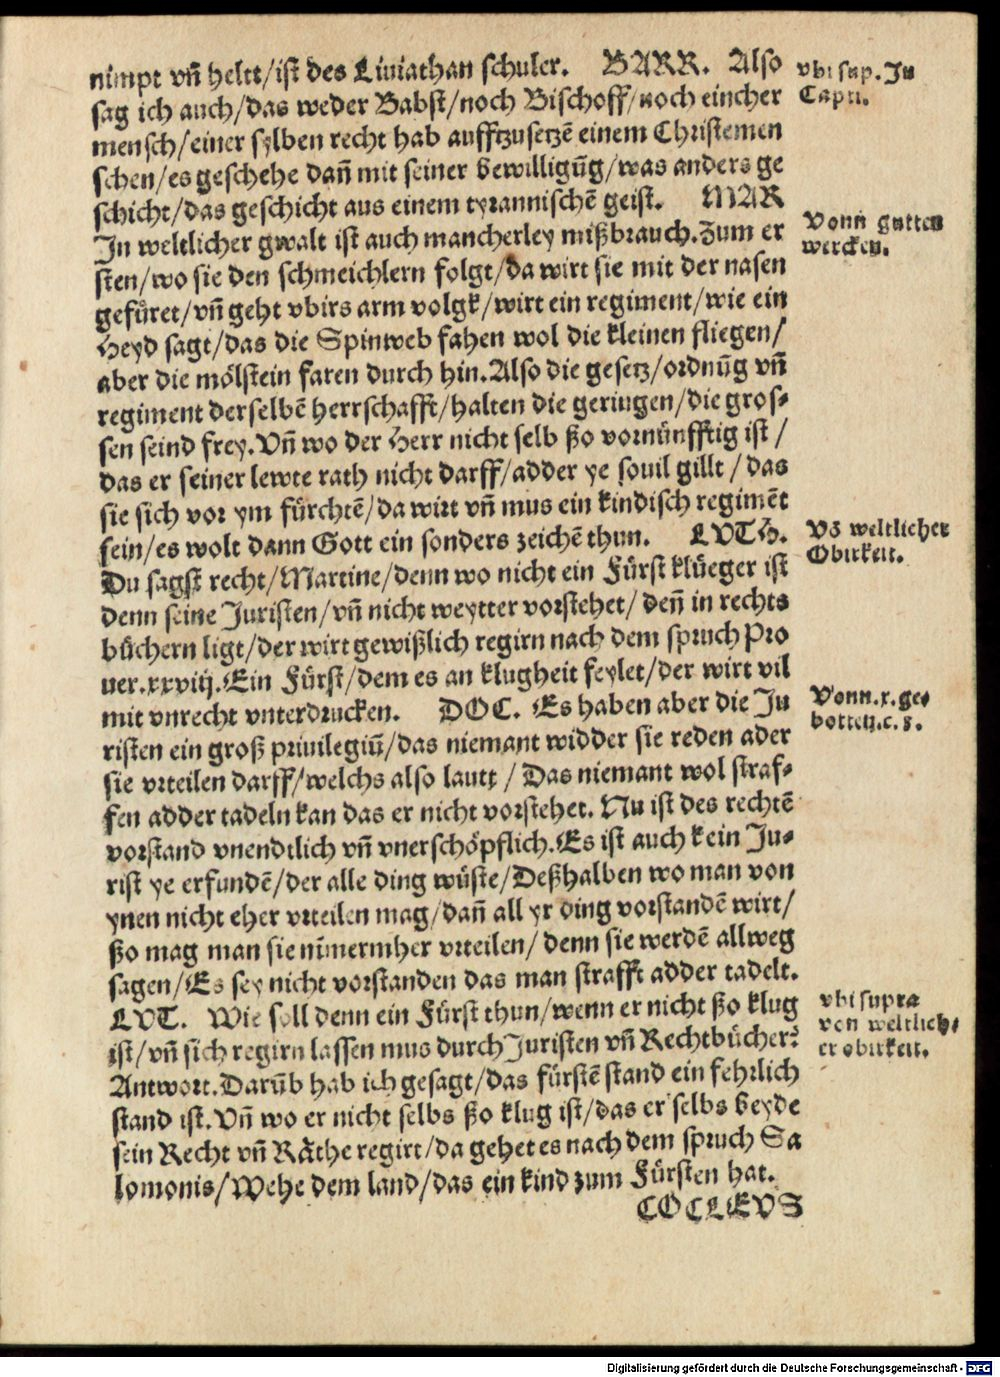 nimpt vñ heltt/ist des Liuiathan schuler. BARR. Also
sag ich auch/das weder Babst/noch Bischoff/noch eincher
mensch/einer sylben recht hab aufftzusetzē einem Christemen
schen/es geschehe dañ mit seiner bewilligūg/was anders ge
schicht/das geschicht aus einem tyrannischē geist. MAR
In weltlicher gwalt ist auch mancherley mißbrauch. Zum er
sten/wo sie den schmeichlern folgt/da wirt sie mit der nasen
gefüret/vñ geht vbirs arm volgk/wirt ein regiment/wie ein
Heyd sagt/das die Spinweb fahen wol die kleinen fliegen/
aber die mölstein faren durch hin. Also die gesetz/ordnūg vñ
regiment derselbē herrschafft/halten die geringen/die gros-
sen seind frey. Vñ wo der Herr nicht selb ßo vornünfftig ist/
das er seiner lewte rath nicht darff/adder ye souil gillt/das
sie sich vor ym fürchtē/da wirt vñ mus ein kindisch regimēt
sein/es wolt dann Gott ein sonders zeichē thun. LVTH.
Du sagst recht/Martine/denn wo nicht ein Fürst klüeger ist
denn seine Juristen/vñ nicht weytter vorstehet/deñ in rechts
büchern ligt/der wirt gewißlich regirn nach dem spruch Pro
uer.xxviij. Ein Fürst/dem es an klugheit feylet/der wirt vil
mit vnrecht vnterdrucken. DOC. Es haben aber die Ju
risten ein groß priuilegiū/das niemant widder sie reden ader
sie vrteilen darff/welchs also lautt/Das niemant wol straf-
fen adder tadeln kan das er nicht vorstehet. Nu ist des rechtē
vorstand vnendtlich vñ vnerschöpflich. Es ist auch kein Ju-
rist ye erfundē/der alle ding wüste/Deßhalben wo man von
ynen nicht eher vrteilen mag/dañ all yr ding vorstandē wirt/
ßo mag man sie nimermher vrteilen/denn sie werdē allweg
sagen/Es sey nicht vorstanden das man strafft adder tadelt.
LVT. Wie soll denn ein Fürst thun/wenn er nicht ßo klug
ist/vñ sich regirn lassen mus durch Juristen vñ Rechtbücher?
Antwort. Darūb hab ich gesagt/das fürstē stand ein fehrlich
stand ist. Vñ wo er nicht selbs ßo klug ist/das er selbs beyde
sein Recht vñ Räthe regirt/da gehet es nach dem spruch Sa
lomonis/Wehe dem land/das ein kind zum Fürsten hat.
COCLEVS
vbi sup. In
Capti.
Vonn gutten
wercken.
Vō weltlicher
Obirkeit.
Vonn.x.ge-
botten.c.8.
vbi supra
von weltlich-
er obirkeit.
Digitalisierung gefördert durch die Deutsche Forschungsgemeinschaft - DFG